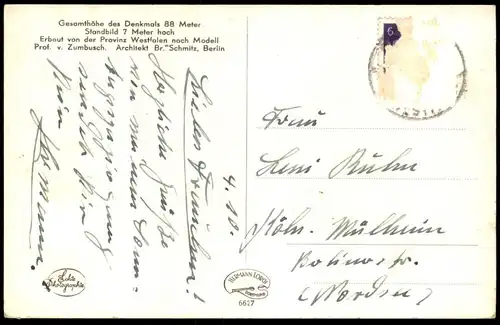 Gesamthöhe des Denkmals 88 Meter
Standbild 7 Meter hoch
Erbaut von der Provinz Westfalen nach Modell
Prof. v. Zumbusch. Architekt Br. Schmitz, Berlin
4.10.
Liebes Frauchen!
Herzliche Grüße
von meinem Sonn-
sendet Dir
Dein
Hermann.
6
Frau
Leni Kuhn
Köln-Mülheim
(Norden)
Echte Photographie
HERMANN LORCH
DORTMUND
6677